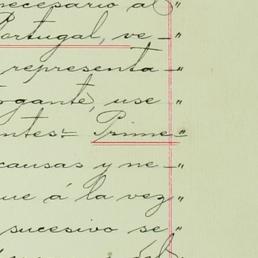 necesario al
Portugal, ve- "
representa- "
rgante, use "
ntes:- Prime- "
causas y ne- "
ue á la vez "
sucesivo se "